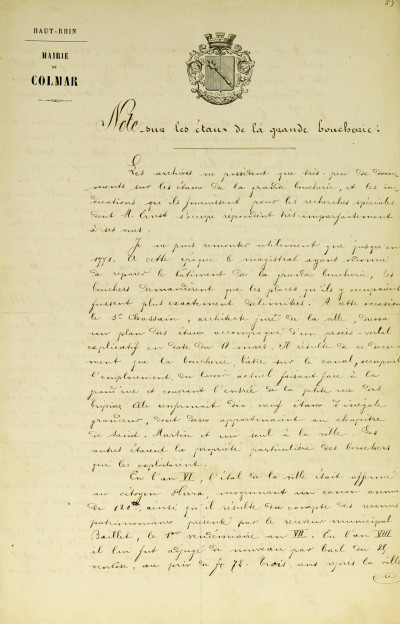 HAUT-RHIN
MAIRIE
DE
COLMAR
Note sur les étaux de la grande boucherie.
Les archives ne possèdent que très-peu de docu-
ments sur les étaux de la grande boucherie, et les in-
dications qu'ils fournissent pour les recherches spéciales
dont M. Ernst s'occupe répondent très-imparfaitement
à ses vues.
Je ne puis remonter utilement que jusqu'en
1771. A cette époque le magistrat ayant ordonné
de réparer le bâtiment de la grande boucherie, les
bouchers demandèrent que les places qu'ils y occupaient
fussent plus exactement délimitées. A cette occasion
le Sr Chassain, architecte juré de la ville, dressa
un plan des étaux accompagné d'un procès-verbal
explicatif en date du 12 mars. Il résulte de ce docu-
ment que la boucherie, bâtie sur le canal, occupait
l'emplacement du lavoir actuel faisant face à la
grand'rue et couvrant l'entrée de la petite rue des
Elle renfermait dix neuf étaux d'inégale
grandeur, dont deux appartenaient au chapitre
de Saint-Martin et un seul à la ville. Les
autres étaient la propriété particulière des bouchers
qui les exploitaient.
En l'an VI, l'étal de la ville était affermé
au citoyen moyennant un canon annuel
de ainsi qu'il résulte du compte des revenus
patrimoniaux présenté par le receveur municipal
Baillet, le 1er vendémiaire an VII. En l'an VIII
il lui fut adjugé de nouveau par bail du 25
ventôse, au prix de fr 72. Trois ans après la ville